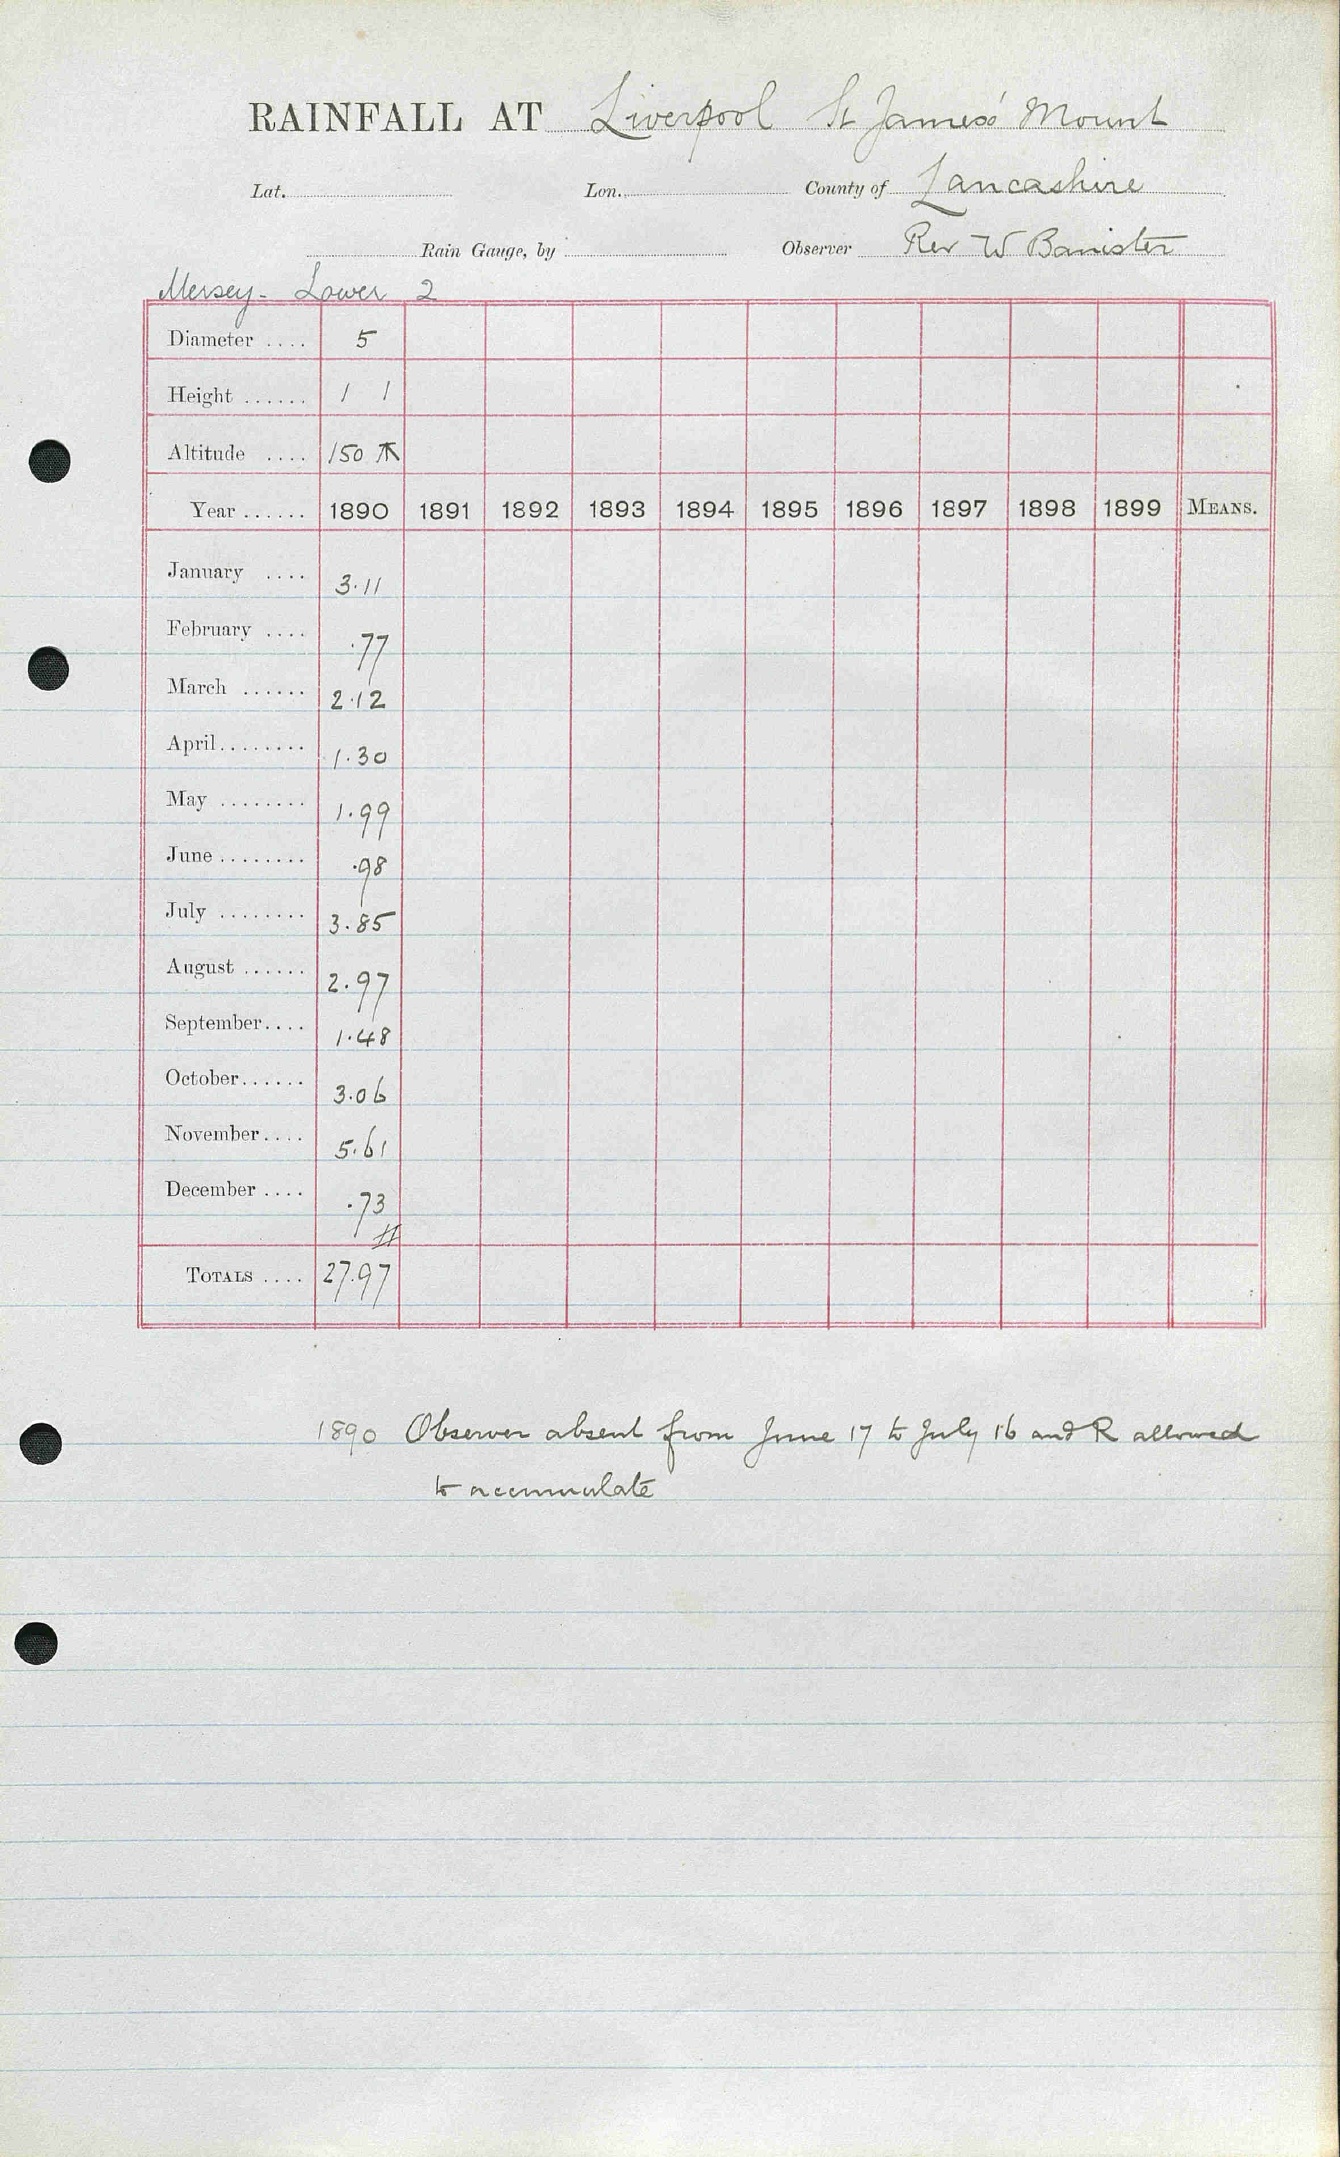 RAINFALL AT Liverpool St James' Mount
Lat. Lon. County of Lancashire
Rain Gauge, by Observer Rev W Banister
Mersey - Lower 2
Diameter .... 5
Height ...... 1 1
Altitude .... 150
Year ...... 1890 1891 1892 1893 1894 1895 1896 1897 1898 1899 MEANS.
January .... 3.11
February .... .77
March ...... 2.12
April........ 1.30
May ........ 1.99
June ........ .98
July ........ 3.85
August ...... 2.97
September.... 1.48
October...... 3.06
November.... 5.61
December .... .73
TOTALS .... 27.97
1890 Observer absent from June 17 to July 16 and R allowed
to accumulate